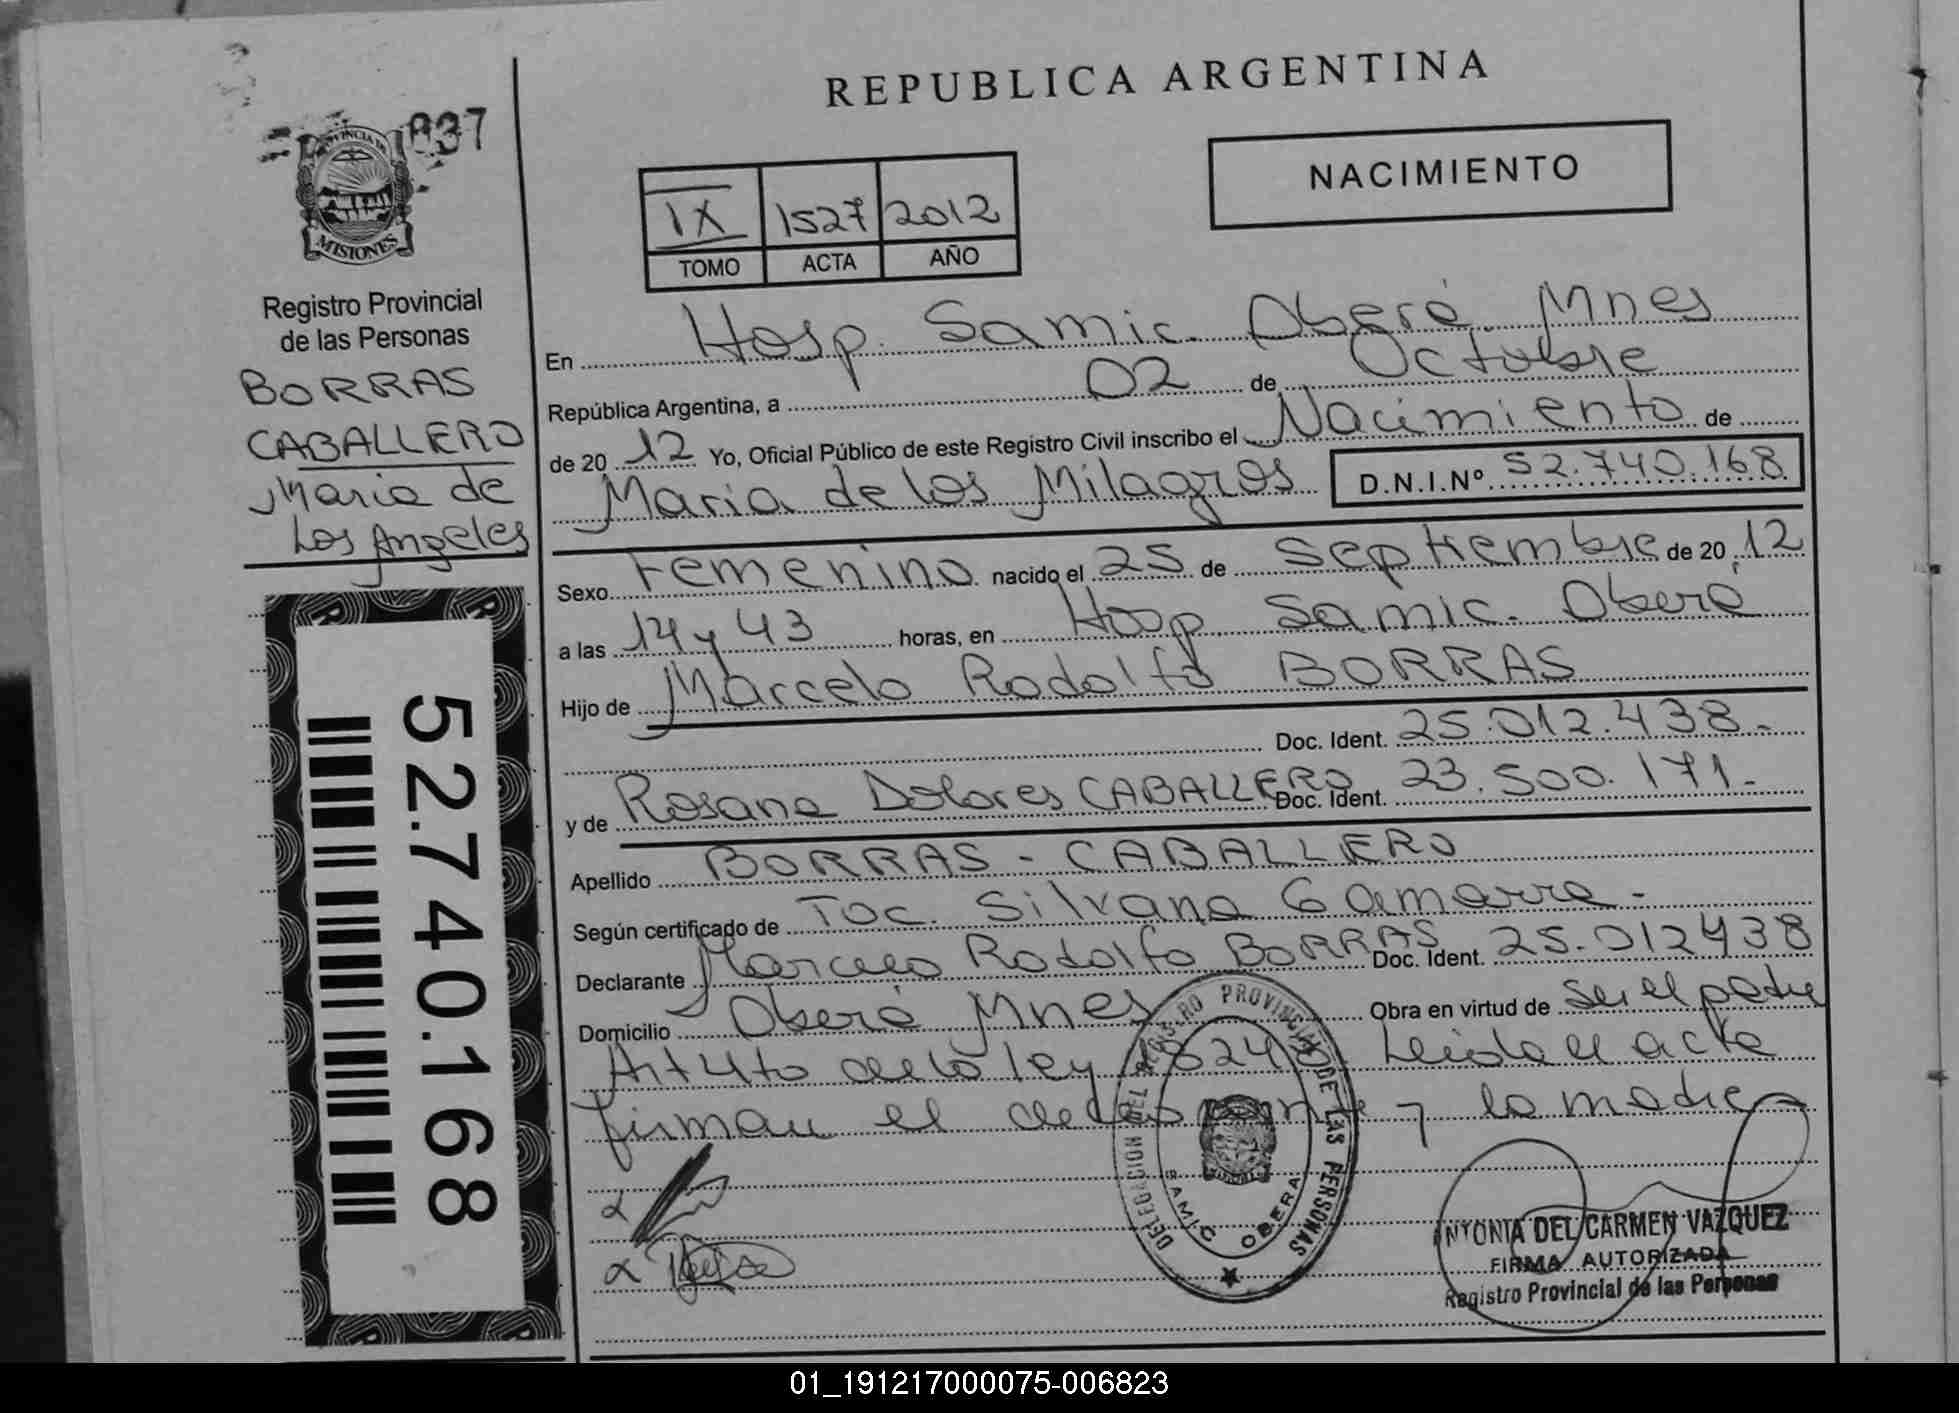 REPUBLICA ARGENTINA
037
PROVINCIA DE
MISIONES
NACIMIENTO
IX 1527 2012
TOMO ACTA AÑO
Registro Provincial
de las Personas
BORRAS
CABALLERO
Maria de
Los Angeles
En Hosp. Samic. Oberá. Mnes
República Argentina, a 02 de Octubre
de 20 12 Yo, Oficial Público de este Registro Civil inscribo el Nacimiento de
Maria de los Milagros D.N.I.Nº 52.740.168
Sexo Femenino nacido el 25 de Septiembre de 20 12
a las 14 y 43 horas, en Hosp Samic. Oberá
Hijo de Marcelo Rodolfo BORRAS
Doc. Ident. 25.012.438.-
y de Rosana Dolores CABALLERO Doc. Ident. 23.500.171.-
Apellido BORRAS - CABALLERO
Según certificado de Toc. Silvana Gamarra.-
Declarante Marcelo Rodolfo BORRAS Doc. Ident. 25.012438
Domicilio Oberá Mnes Obra en virtud de ser el padre
de la ley Leida el acta
firman el y la madre
52.740.168
DELEGACION DEL REGISTRO PROVINCIAL DE LAS PERSONAS
SAMIC OBERA
ANTONIA DEL CARMEN VAZQUEZ
FIRMA AUTORIZADA
Registro Provincial de las Personas
01_191217000075-006823